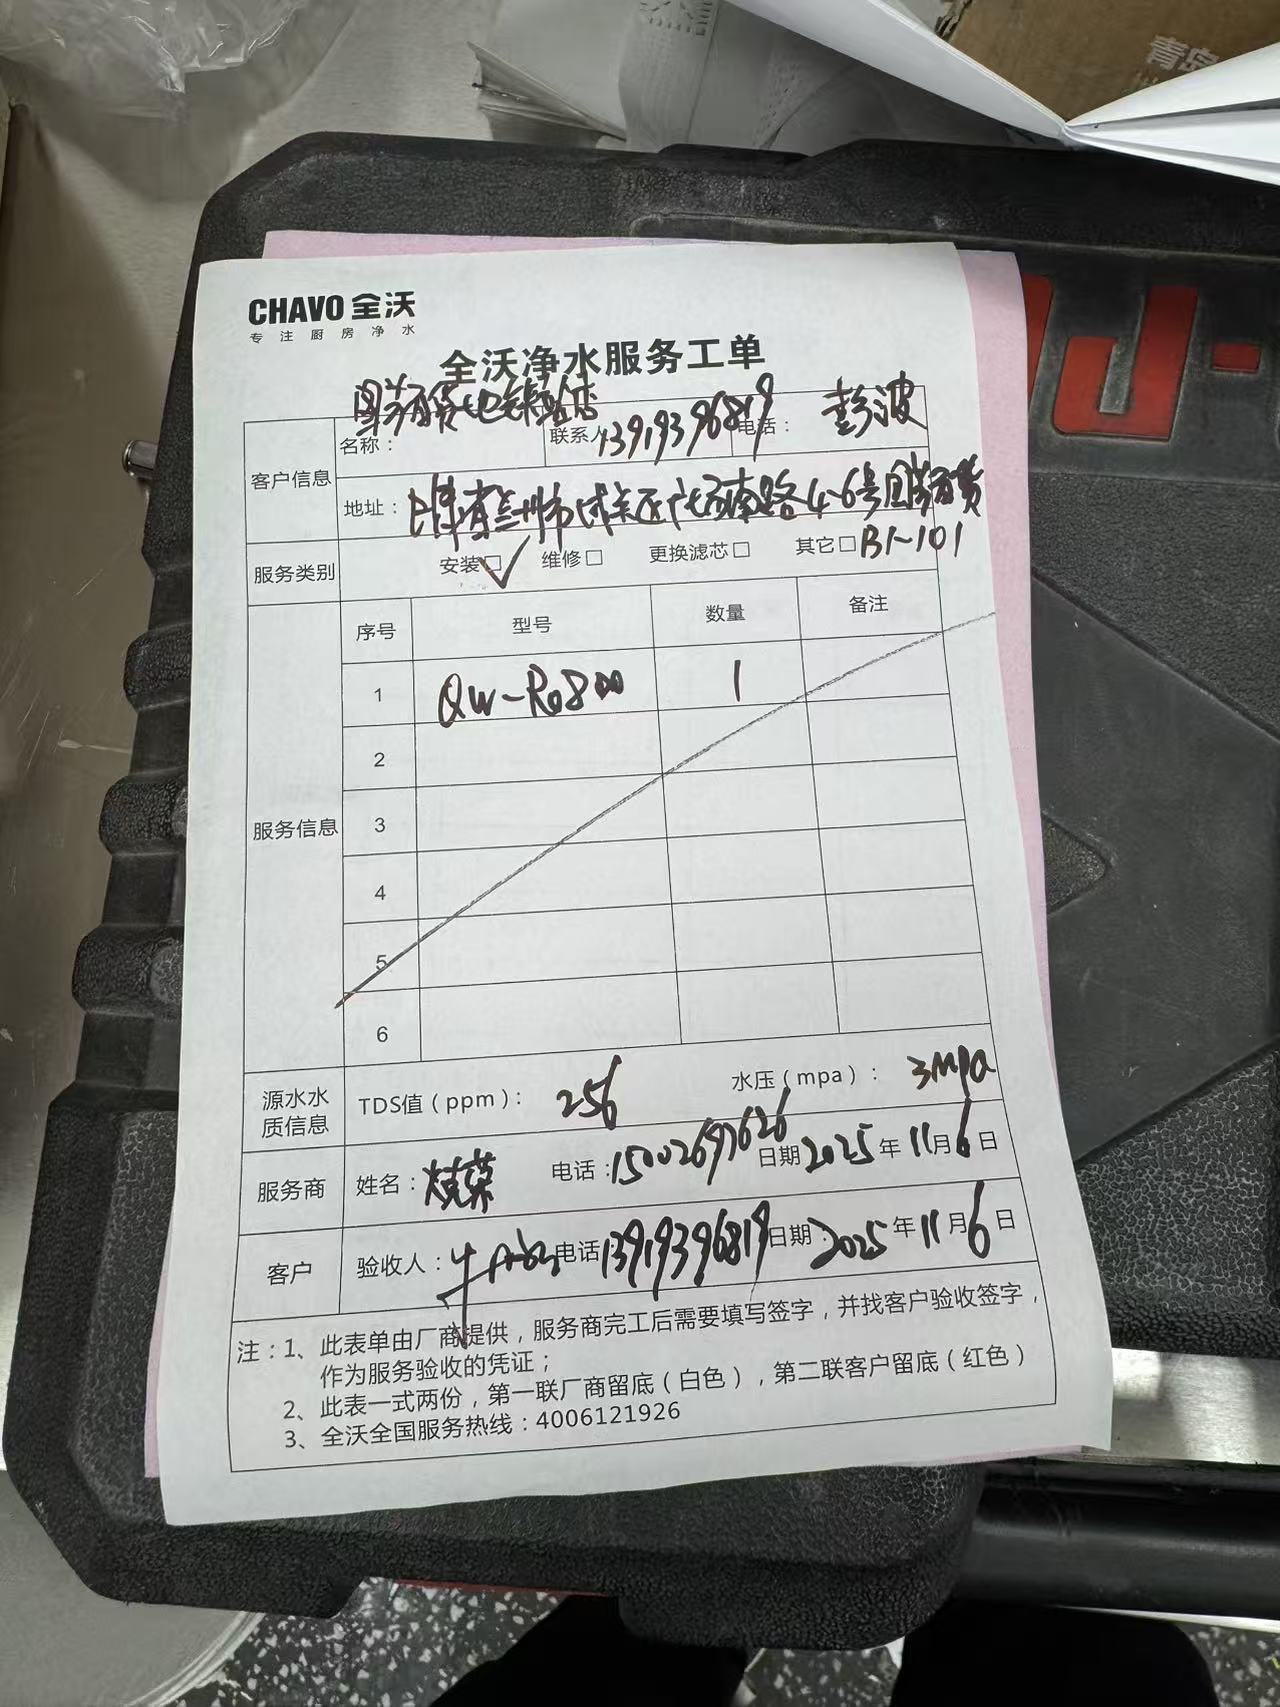 青岛
CHAVO 全沃
专注厨房净水
全沃净水服务工单
国芳百货地铁
客户信息 名称： 联系人 13919396819 电话： 彭波
地址： 甘肃省兰州市城关区广场南路4-6号国芳百货
服务类别 安装☑ 维修□ 更换滤芯□ 其它□ B1-101
服务信息 序号 型号 数量 备注
1 QW-Ro800 1
2
3
4
5
6
源水水质信息 TDS值（ppm）： 256 水压（mpa）： 3mpa
服务商 姓名： 电话：15002697626 日期 2025年11月6日
客户 验收人： 电话 13919396819 日期： 2025年11月6日
注：1、此表单由厂商提供，服务商完工后需要填写签字，并找客户验收签字，
作为服务验收的凭证；
2、此表一式两份，第一联厂商留底（白色），第二联客户留底（红色）
3、全沃全国服务热线：4006121926